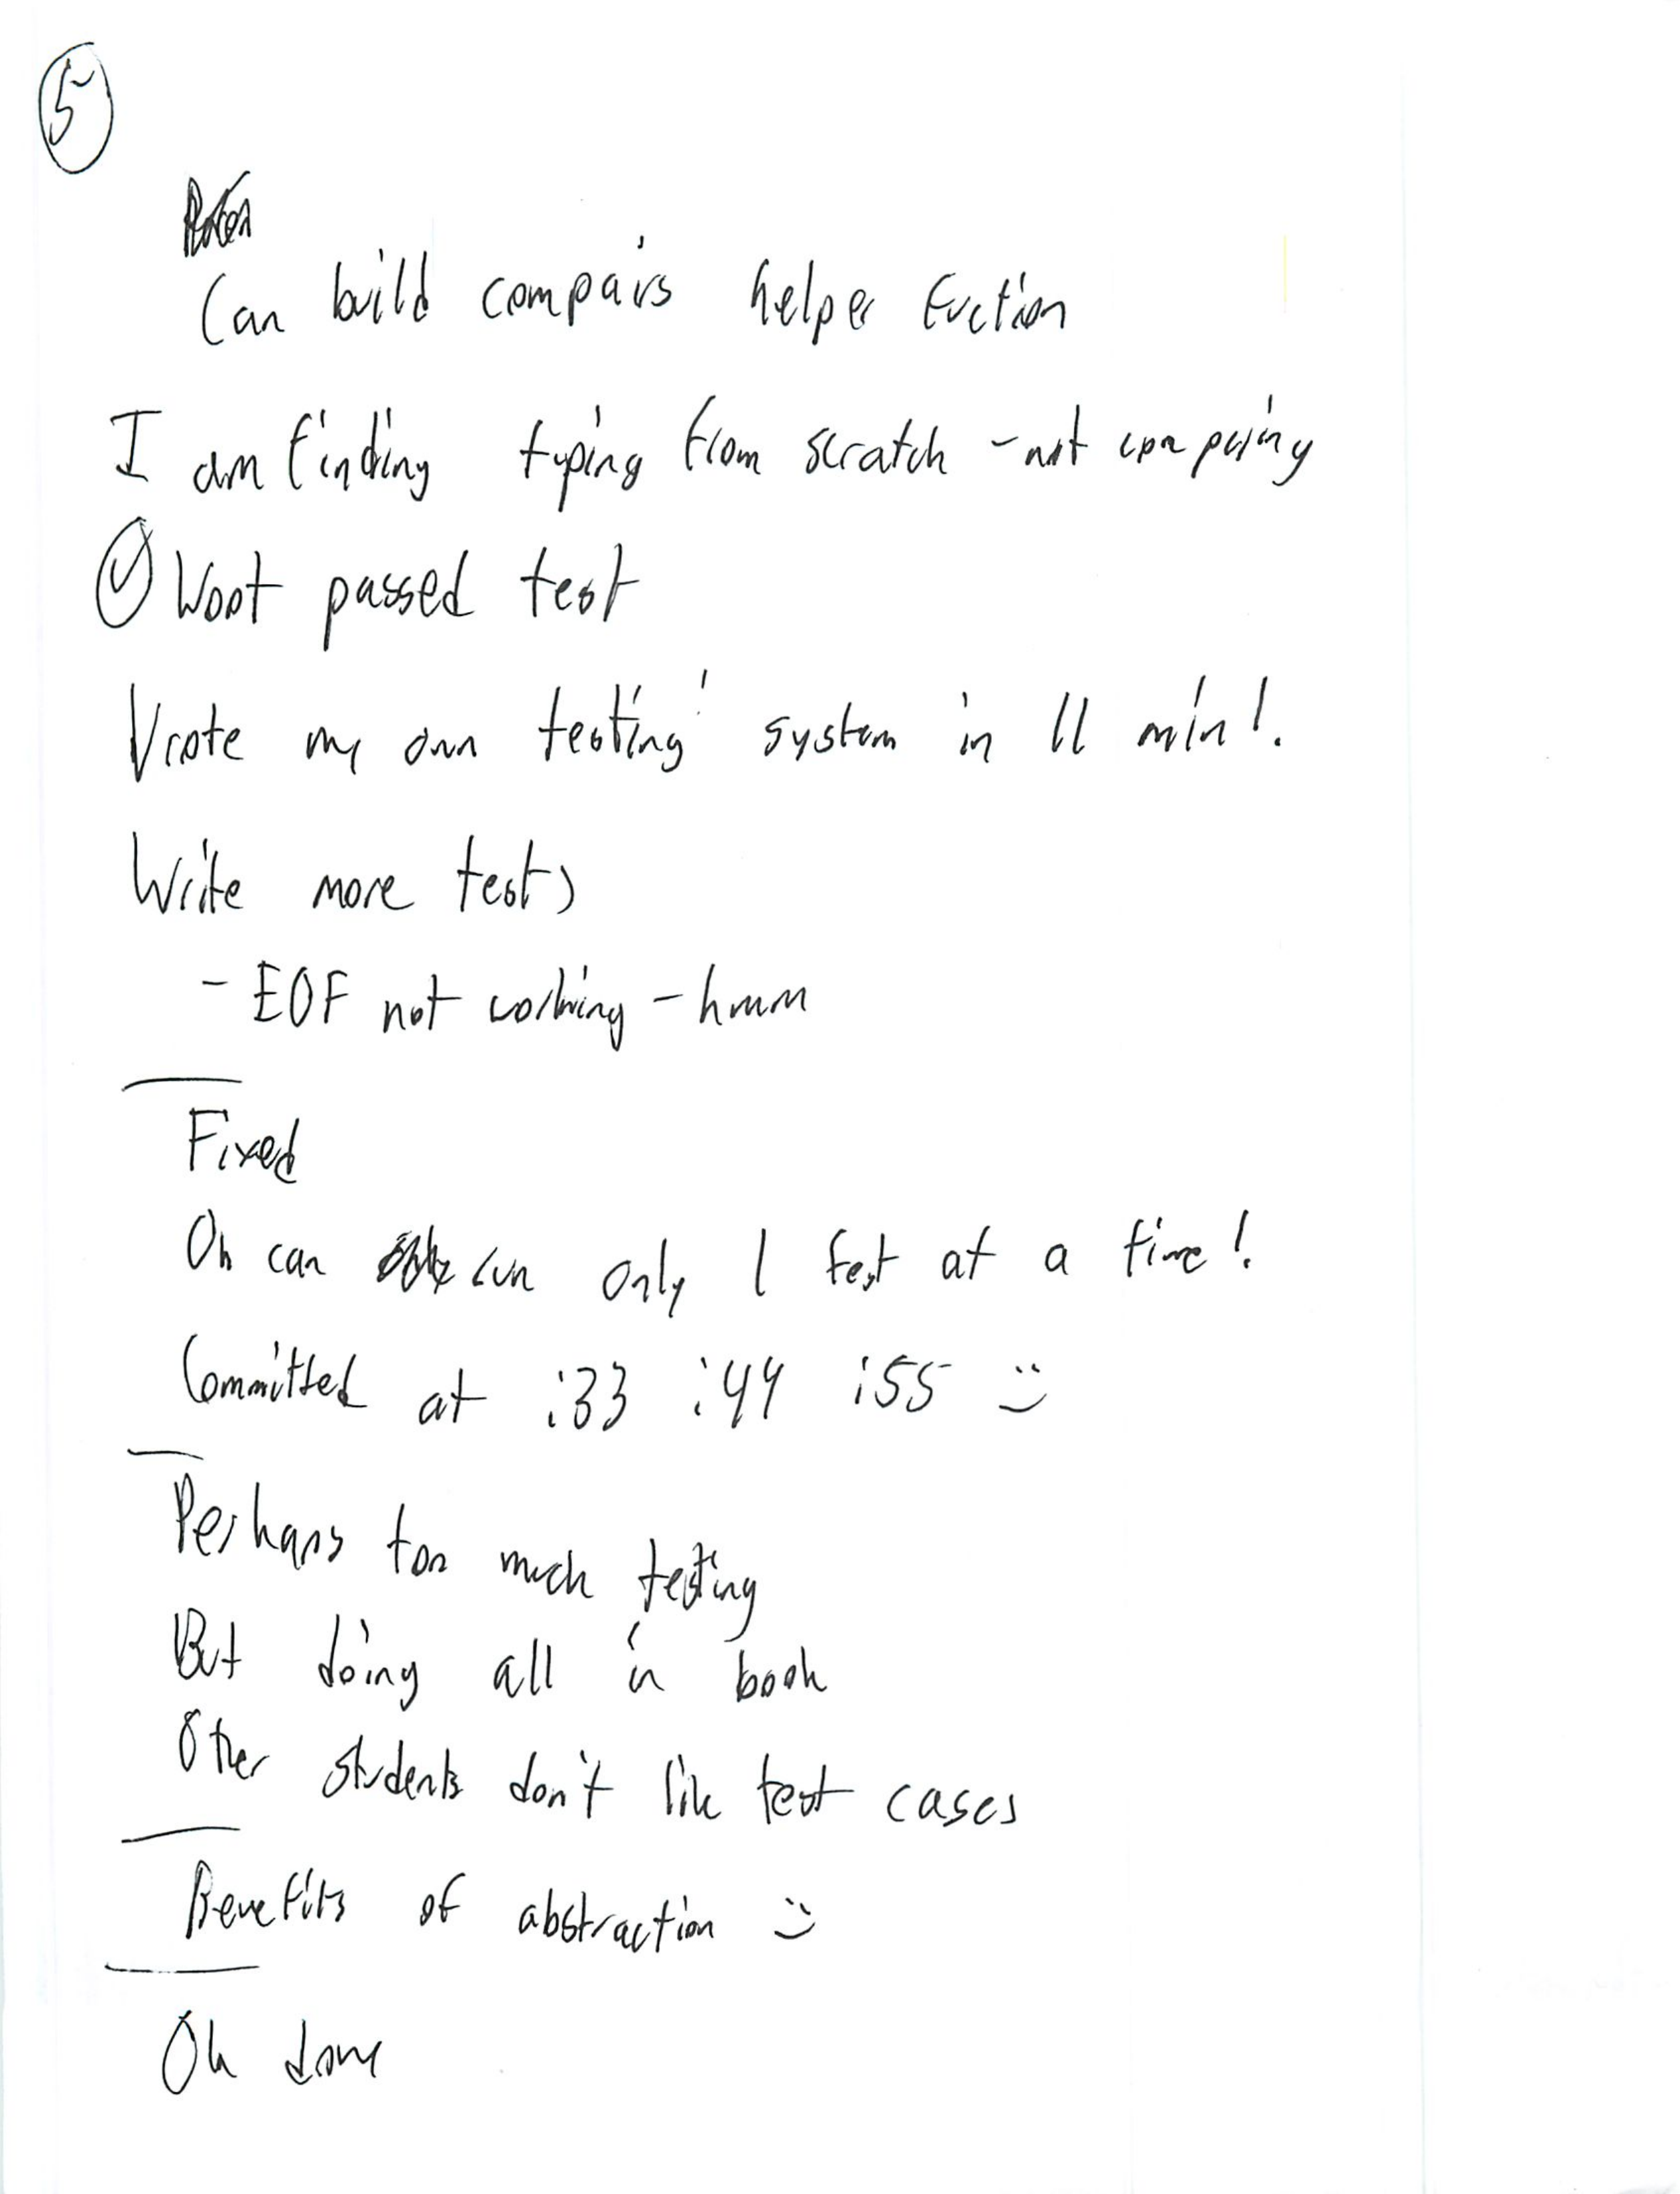 5
Can build compairs helper fuction
I am finding typing from scratch - not comparing
Woot passed test
Wrote my own testing system in 11 min!
Write more tests
- EOF not working - hmm
Fixed
Oh can run only 1 test at a time!
Committed at :33 :44 :55 :)
Perhaps too much testing
But doing all in book
Other students don't like test cases
Benefits of abstraction :)
Ok done